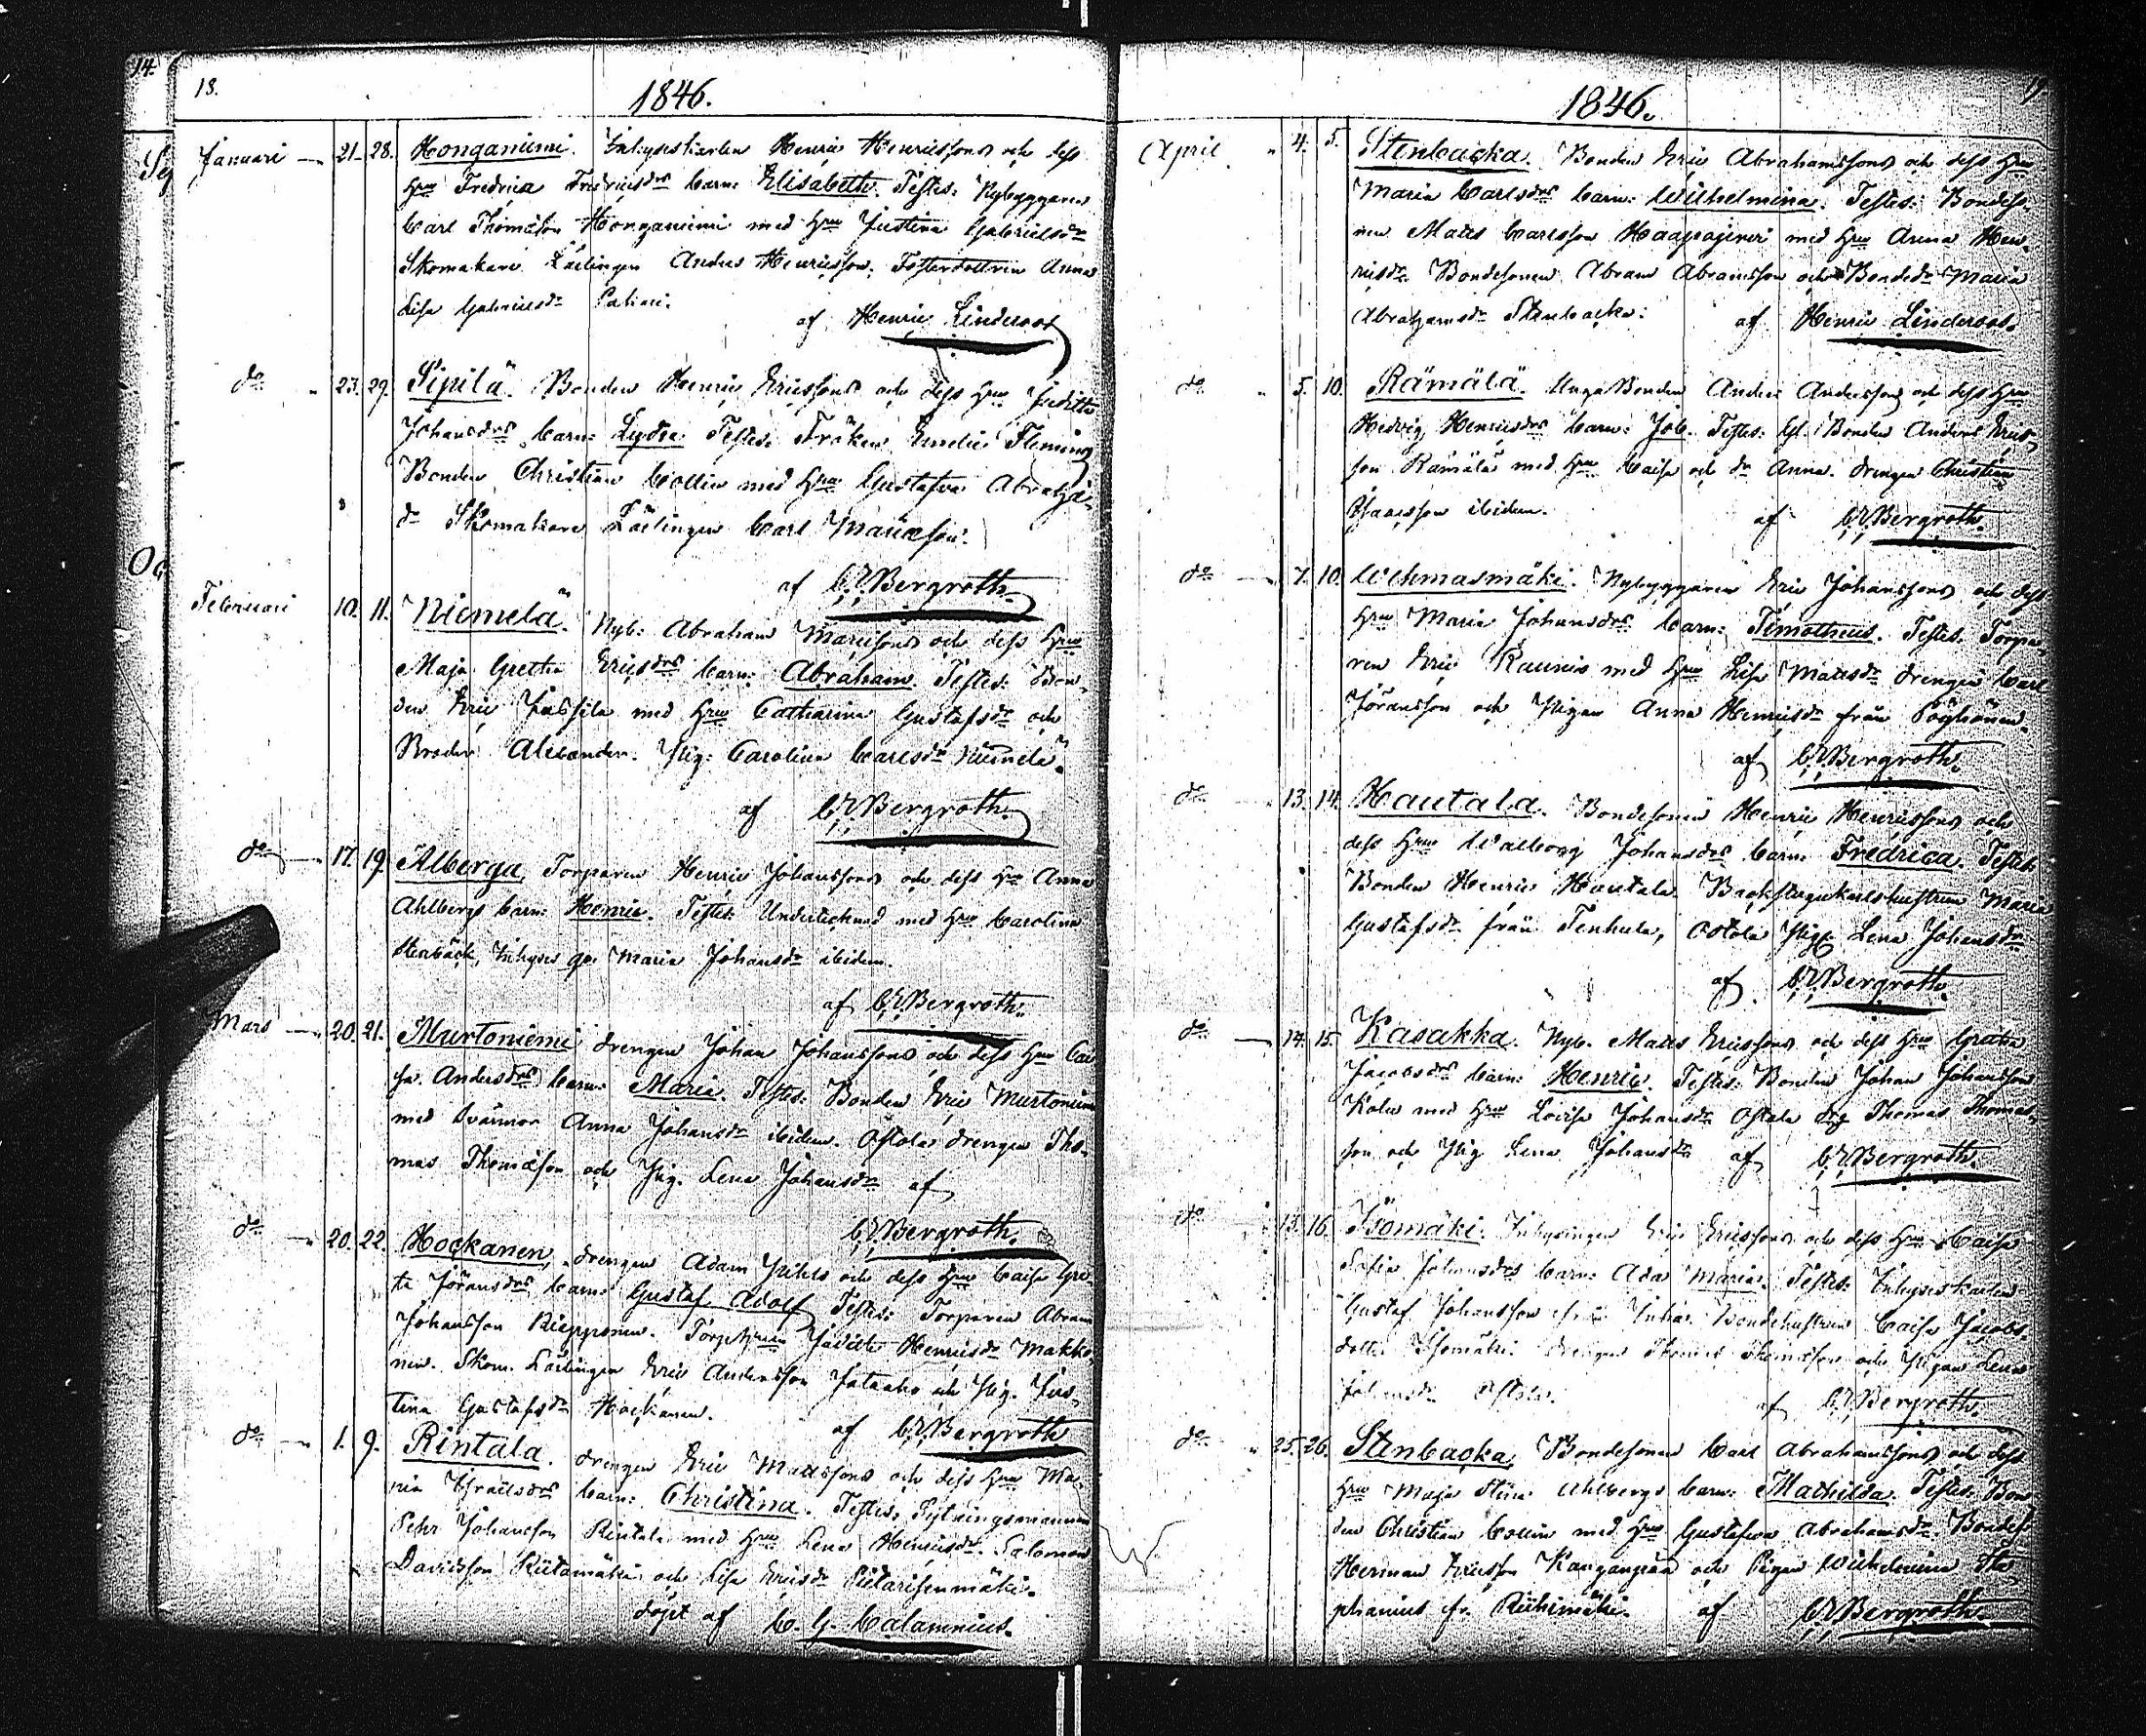 14.
18.
1846.
Januari 21. 28. Honganiemi. Inhyseskarlen Henric Henricssons och dess
Hru Fredrica Fredricsdrs barn: Elisabeth. Testes: Nybyggaren
Carl Thomasson Honganiemi med Hru Justina Gabrielsdr
Skomakare Lärlingen Anders Henricsson, Fosterdottren Anna
Lisa Gabrielsdr
af Henric Linderoos
do 23. 29. Sipilä. Bonden Henric Ericssons och dess Hru Judith
Johansdrs barn: Lydia. Testes: Fröken Emelie Fleming
Bonden Christian Collin med Hru Gustafva Abrahams
dr Skomakare Lärlingen Carl
af C.E. Bergroth.
Februari 10. 11. Niemelä. Nyb: Abraham och dess Hru
Maja Greta Ericsdrs barn: Abraham. Testes: Bon-
den Eric Jussila med Hru Catharina Gustafsdr och
Broder Alexander. Pig: Carolina Carlsdr Niemelä.
af C.E. Bergroth.
do 17. 19. Alberga, Torparen Henric Johanssons och dess Hu Anna
Ahlbergs barn: Henric. Testes: Undertecknad med Hru Carolina
Stenbäck, Inhyses qv. Maria Johansdr ibidem.
af C.E. Bergroth.
Mars 20. 21. Murtoniemi drengen Johan Johanssons och dess Hru Cai
sa Andersdrs barn: Maria. Testes: Bonden Eric Murtoniemi
med Svärmor Anna Johansdr ibidem. Ostola drengen Tho-
mas Thomasson och Pig. Lena Johansdr af
C.E. Bergroth.
do 20. 22. Hockanen, drengen Adam och dess Hru Caisa Gre-
ta Jöransdrs barn: Gustaf Adolf Testes: Torparen Abram
Johansson Riepponen. Torp.hrun Judith Henricsdr Makko-
nen. Skom. Lärlingen Eric Andersson och Pig. Jus-
tina Gustafsdr Hockanen.
af C.E. Bergroth
do 1. 9. Rintala. drengen Eric Mattssons och dess Hru Ma-
ria Israelsdrs barn: Christina. Testes:
Pehr Johansson Rintala med Hru Lena Henricsdr. Salomon
Davidsson och Lisa Ericsdr
döpt af C. G. Calamnius.
1846.
April 4. 5. Stenbacka. Bonden Eric Abrahamssons och dess Hru
Maria Carlsdrs barn: Wilhelmina. Testes: Bondeso-
nen Matts Carlsson Haapajärvi med Hru Anna Hen-
ricsdr. Bondesonen Abram Abramsson och Bondedr Maria
Abrahamsdr Stenbacka:
af Henric Linderoos.
do 5. 10. Rämälä. Unga Bonden Anders Anderssons och dess Hru
Hedvig Henricsdrs barn: Job. Testes: Gl. Bonden Anders Erics-
son Rämälä med Hru Caisa och dr Anna. drengen Christian
Isacsson ibidem.
af C.E. Bergroth.
do 7. 10. Wehmasmäki. Nybyggaren Eric Johanssons och dess
Hru Maria Johansdrs barn: Timotheus. Testes. Torpa-
ren Eric Kaunis med Hru Lisa Mattsdr drengen Carl
Jöransson och Pigan Anna Henricsdr från
af C.E. Bergroth.
do 13. 14. Hautala. Bondesonen Henric Henricssons och
dess Hru Walborg Johansdrs barn: Fredrica. Testes
Bonden Henric Hautala. Backstugukarlshustrun Maria
Gustafsdr från Tenhula, Ostola Pig. Lena Johansdr.
af C.E. Bergroth.
do 14. 15. Kasakka. Nyb. Matts Ericssons och dess Hru Greta
Jacobsdrs barn: Henric. Testes: Bonden Johan Johansson
med Hru Lovisa Johansdr Ostola drg Thomas Thomas-
son och Pig Lena Johansdr af C.E. Bergroth.
do 13. 16. Isomäki. Inhysingen Eric Ericssons och dess Hru Caisa
Sofia Johansdrs barn: Ada Maria. Testes: Inhyseskarlen
Gustaf Johansson Bondehustrun Caisa Jacobs
dotter Isomäki. drengen Thomas Thomasson och Pigan Lena
Johansdr Ostola.
af C.E. Bergroth.
do 25. 26. Stenbacka, Bondesonen Carl Abrahamssons och dess
Hru Maja Stina Ahlbergs barn: Mathilda. Testes: Bon
den Christian Collin med Hru Gustafva Abrahamsdr. Bondes
Herman Ericsson Kangaspää och Pigan Wilhelmina Ste
phanius fr. Riihimäki.
af C.E. Bergroth.